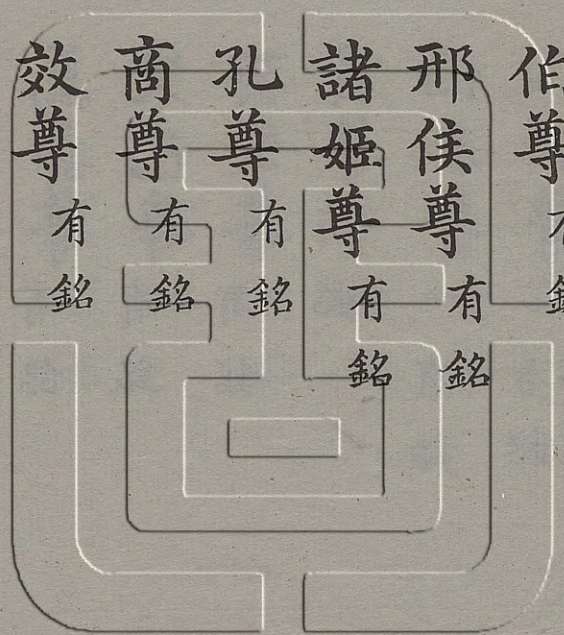 伯尊有銘
邢侯尊有銘
諸姬尊有銘
孔尊有銘
商尊有銘
效尊有銘